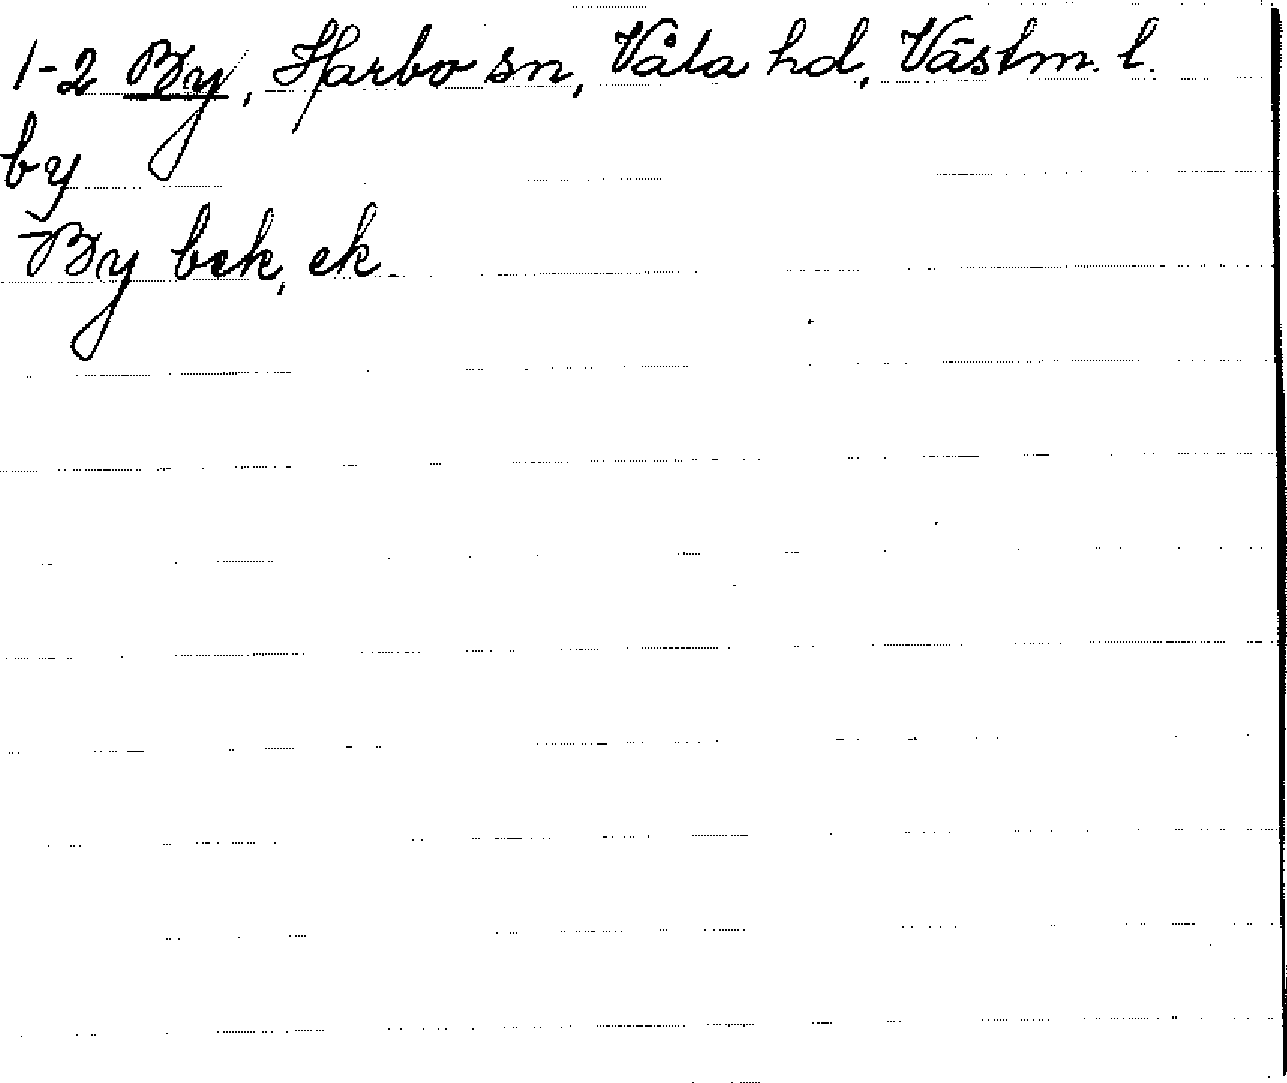 1-2 By, Harbo sn, Våla hd, Västm. l.
by
By bek, ek